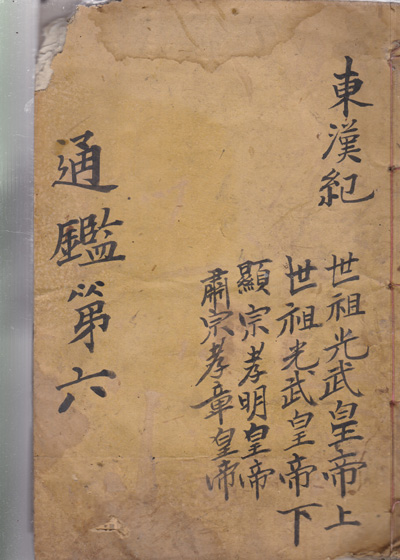 東漢紀
世祖光武皇帝上
世祖光武皇帝下
顯宗孝明皇帝
肅宗孝章皇帝
通鑑第六